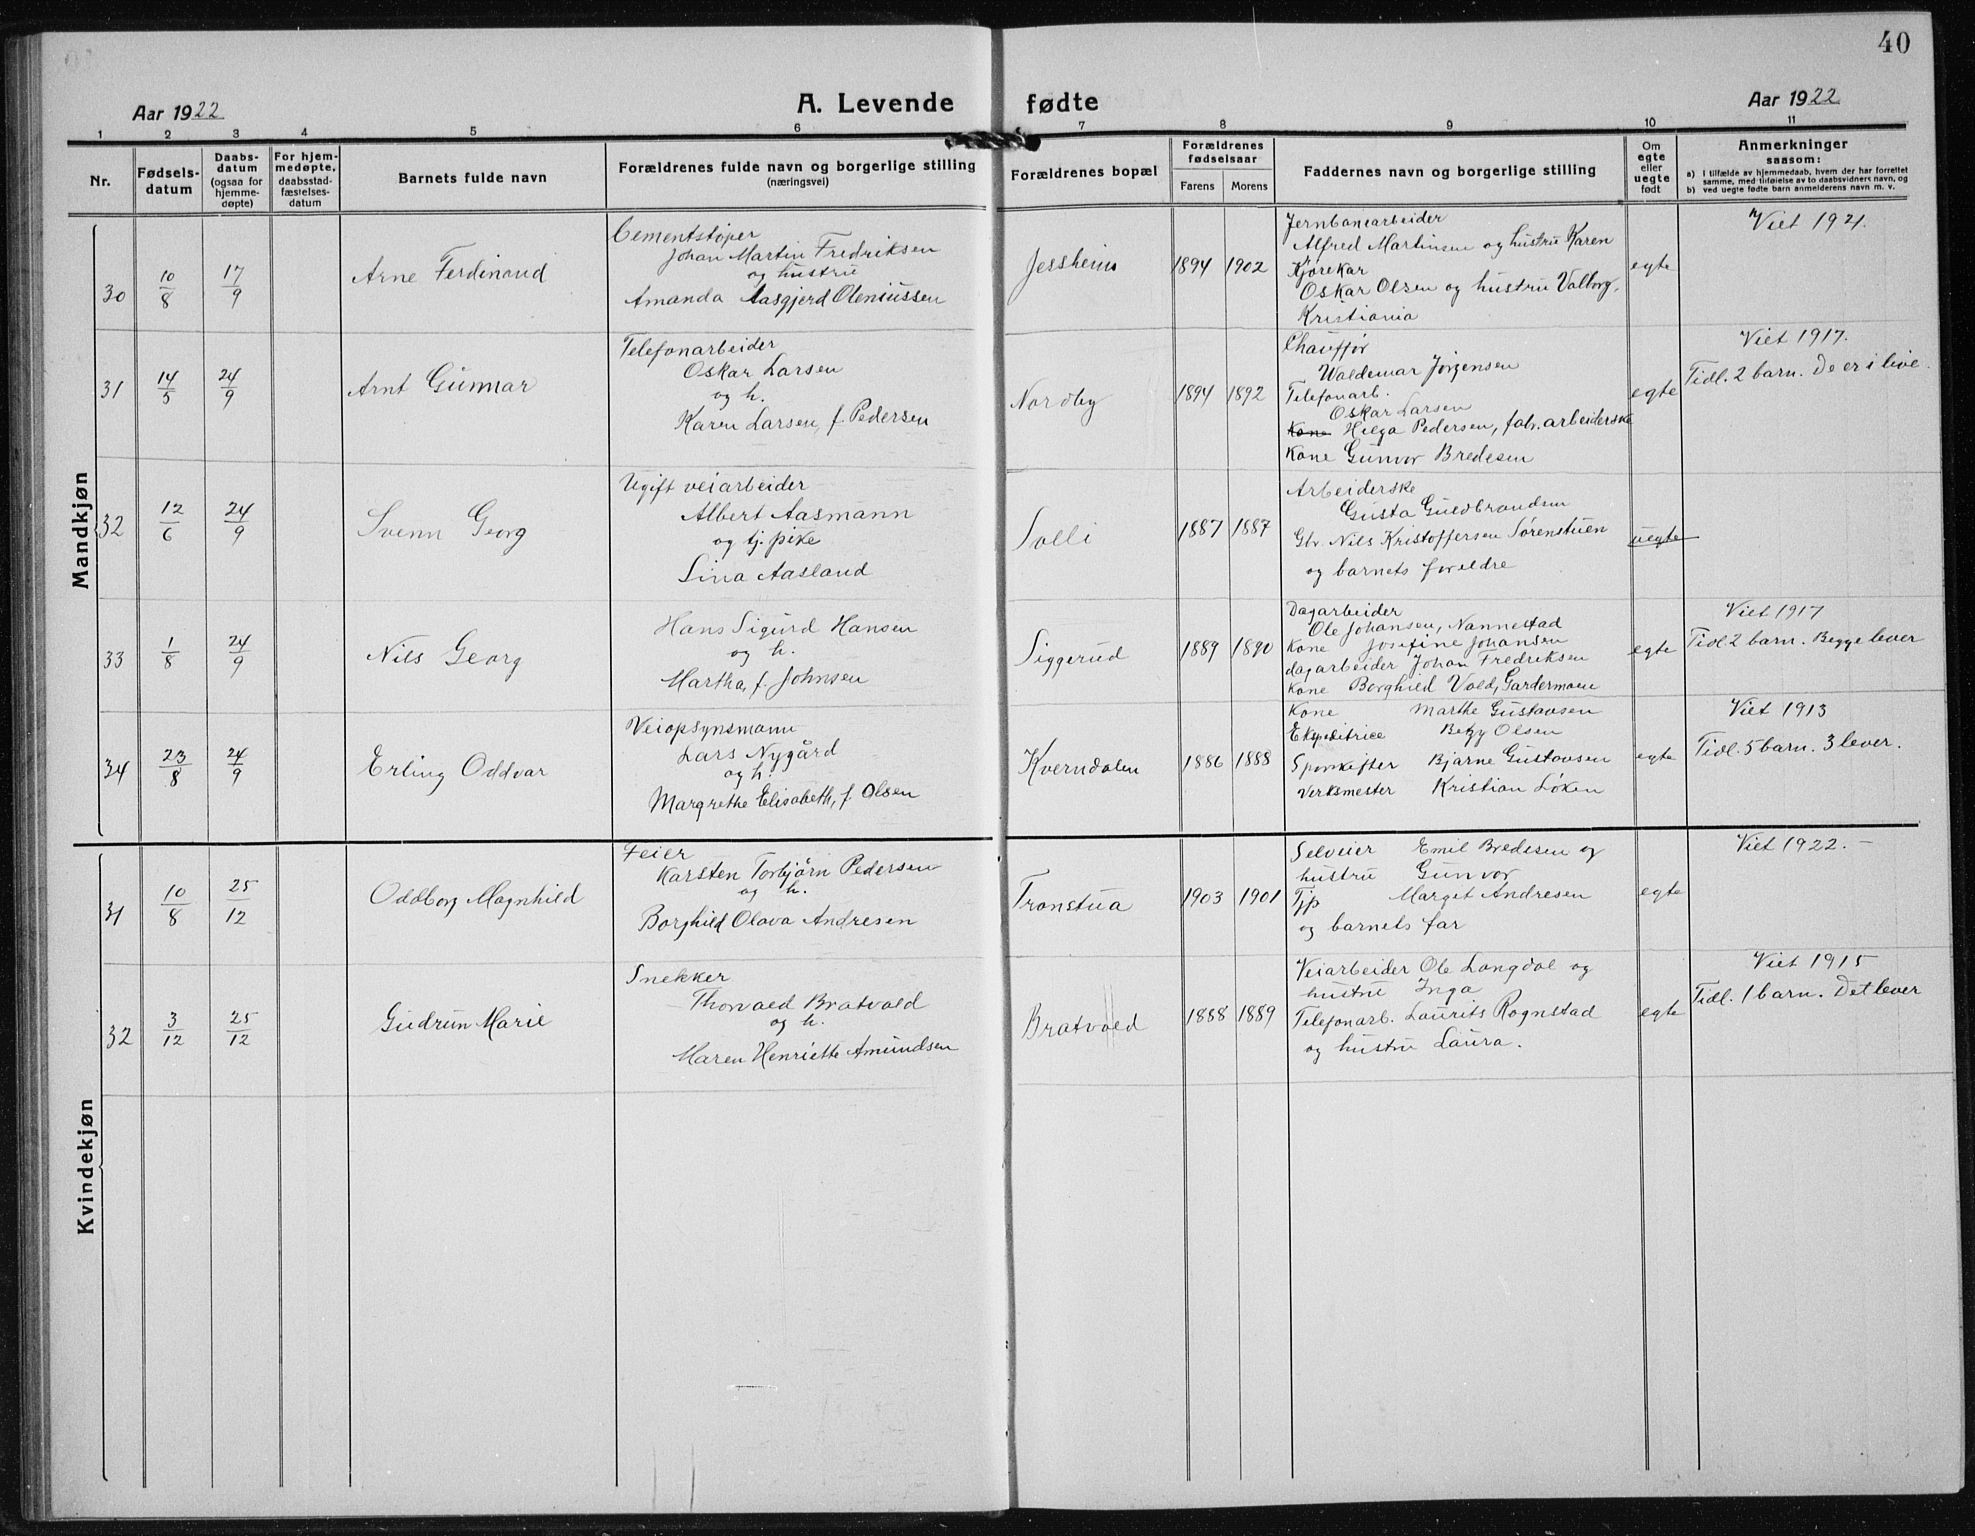 40
Aar 1922
A. Levende fødte
Aar 1922
1 2 3 4 5 6 7 8 9 10 11
Nr.
Fødsels-
datum
Daabs-
datum
(ogsaa for
hjemme-
døpte)
For hjem-
medøpte,
daabsstad-
fæstelses-
datum
Barnets fulde navn
Forældrenes fulde navn og borgerlige stilling
(næringsvei)
Forældrenes bopæl
Forældrenes
fødselsaar
Farens Morens
Faddernes navn og borgerlige stilling
Om
egte
eller
uegte
født
Anmerkninger
saasom:
a) I tilfælde av hjemmedaab, hvem der har forrettet
samme, med tilføielse av to daabsvidners navn, og
b) ved uegte fødte barn anmelderens navn m. v.
Mandkjøn
30
10/8
17/9
Arne Ferdinand
Cementstøper
Johan Martin Fredriksen
og hustru
Amanda Aasgjerd Oleniussen
Jessheim
1894 1902
Jernbanearbeider
Alfred Martinsen og hustru Karen
Kjørekar
Oskar Olsen og hustru Valborg,
Kristiania
egte
Viet 1921.
31
14/5
24/9
Arnt Gunnar
Telefonarbeider
Oskar Larsen
og h.
Karen Larsen, f. Pedersen
Nordby
1894 1892
Chauffør
Waldemar Jørgensen
Telefonarb.
Oskar Larsen
Kone Helga Pedersen, fabr. arbeiderske
Kone Gunvor Bredesen
egte
Viet 1917.
Tidl. 2 barn. De er i live.
32
12/6
24/9
Svenn Georg
Ugift veiarbeider
Albert Aasmann
og tj. pike
Lina Aasland
Solli
1887 1887
Arbeiderske
Gusta Guldbrandsen
Gbr. Nils Kristoffersen Sørenstuen
og barnets foreldre
uegte
33
1/8
24/9
Nils Georg
Hans Sigurd Hansen
og h.
Martha, f. Johnsen
Siggerud
1889 1890
Dagarbeider
Ole Johansen, Nannestad
Kone Josefine Johansen
dagarbeider Johan Fredriksen
Kone Borghild Vold, Gardermoen
egte
Viet 1917
Tidl. 2 barn. Begge lever
34
23/8
24/9
Erling Oddvar
Veiopsynsmann
Lars Nygård
og h.
Margrethe Elisabeth, f. Olsen
Kverndalen
1886 1888
Kone Marthe Gustavsen
Ekspeditrice Betzy Olsen
Bjarne Gustavsen
Verksmester Kristian Løken
egte
Viet 1913
Tidl. 5 barn. 3 lever.
Kvindekjøn
31
10/8
25/12
Oddborg Magnhild
Feier
Karsten Torbjørn Pedersen
og h.
Borghild Olava Andresen
Tronstua
1903 1901
Selveier Emil Bredesen og
hustru Gunvor
Tjp Margit Andresen
og barnets far
egte
Viet 1922. –
32
3/12
25/12
Gudrun Marie
Snekker
Thorvald Bratvold
og h.
Maren Henriette Amundsen
Bratvold
1888 1889
Veiarbeider Ole Langdal og
hustru Inga
Telefonarb. Laurits Rognstad
og hustru Laura.
egte
Viet 1915
Tidl. 1 barn. Det lever